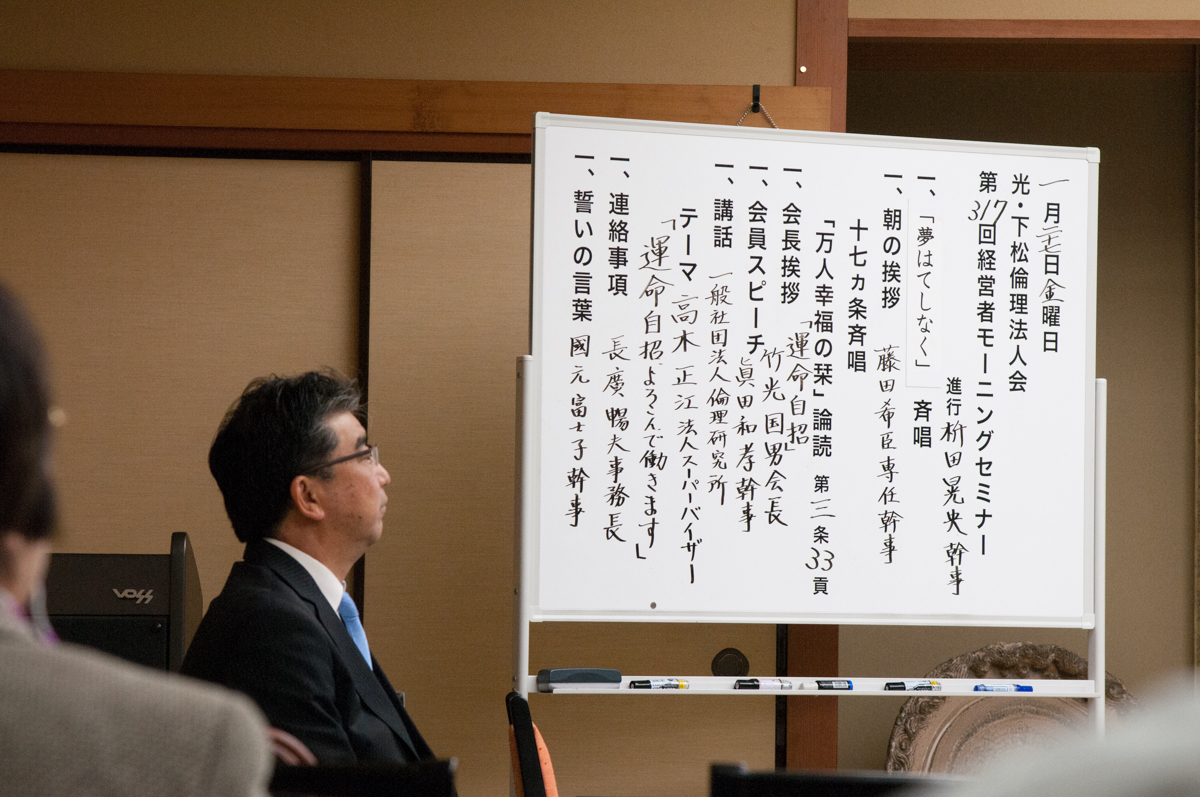 一月二十七日金曜日
光・下松倫理法人会
第317回経営者モーニングセミナー
進行 枡田晃央幹事
一、「夢はてしなく」斉唱
一、朝の挨拶 藤田希臣専任幹事
十七ヵ条斉唱
「万人幸福の栞」論読 第三条33貢
「運命自招」
一、会長挨拶 竹光国男会長
一、会員スピーチ 眞田和孝幹事
一、講話 一般社団法人倫理研究所
テーマ 高木正江法人スーパーバイザー
「運命自招 よろこんで働きます」
一、連絡事項 長廣暢夫事務長
一、誓いの言葉 國元富士子幹事
VOSS